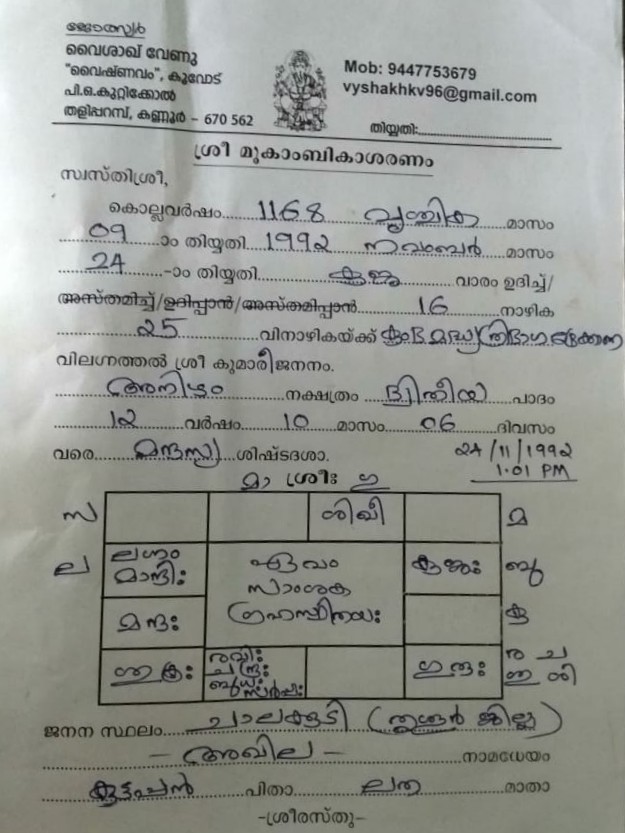 ജ്യോത്സ്യർ
വൈശാഖ് വേണു
"വൈഷ്ണവം", കൂവോട്
പി.ഒ.കുറ്റിക്കോൽ
തളിപ്പറമ്പ്, കണ്ണൂർ – 670 562
Mob: 9447753679
vyshakhkv96@gmail.com
തിയ്യതി:
ശ്രീ മൂകാംബികാശരണം
സ്വസ്തിശ്രീ,
കൊല്ലവർഷം 1168 വൃശ്ചിക മാസം
09 ാം തിയ്യതി 1992 നവംബർ മാസം
24 -ാം തിയ്യതി കുജ വാരം ഉദിച്ച്/
അസ്തമിച്ച്/ഉദിപ്പാൻ/അസ്തമിപ്പാൻ 16 നാഴിക
25 വിനാഴികയ്ക്ക് കുംഭ മദ്ധ്യത്രിഭാഗ
വിലഗ്നത്തൽ ശ്രീ കുമാരീജനനം.
അനിഴം നക്ഷത്രം ദ്വിതീയ പാദം
12 വർഷം 10 മാസം 06 ദിവസം
വരെ മന്ദസ്യ ശിഷ്ടദശാ.
24/11/1992
1.01 PM
മാ ശ്രീഃ ഗു
സ ശിഖീ മ
ല ലഗ്നം മാന്ദിഃ ഏവം കുജഃ ബു
സാംശക
മന്ദഃ ഗ്രഹസ്ഥിതയഃ കു
ശുക്രഃ രവിഃ ചന്ദ്രഃ ബുധഃ സർപ്പഃ ഗുരുഃ ര ച
ശു ശി
ജനന സ്ഥലം ചാലക്കുടി (തൃശൂർ ജില്ല)
– അഖില – നാമധേയം
കുട്ടപ്പൻ പിതാ ലത മാതാ
-ശ്രീരസ്തു-